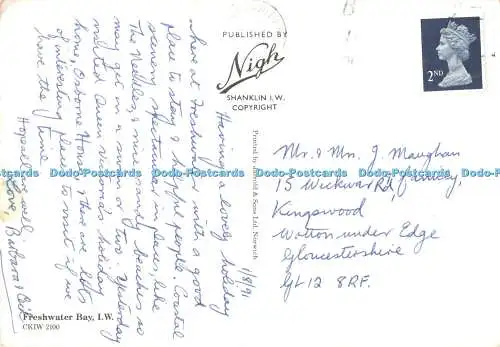 1/8/91
Having a lovely holiday
here at Freshwater with a good
place to stay & helpful people. Coastal
scenery spectacular in places, like
The Needles, & nice sandy beaches so
may get in a swim or two. Yesterday
visited Queen Victoria's holiday
home, Osborne House, & there are lots
of interesting places to visit if we
have the time.
Hope all well.
Love Barbara &
PUBLISHED BY
Nigh
SHANKLIN I.W.
COPYRIGHT
Printed by & Sons Ltd. Norwich
2ND
Mr. & Mrs. J. Maughan
15 Wickwar Rd,
Kingswood
Wotton under Edge
Gloucestershire
GL12 8RF.
Freshwater Bay, I.W.
CKIW 2100
Dodo-Postcards Dodo-Postcards Dodo-Postcards Dodo-Postcards Dodo-Postcards